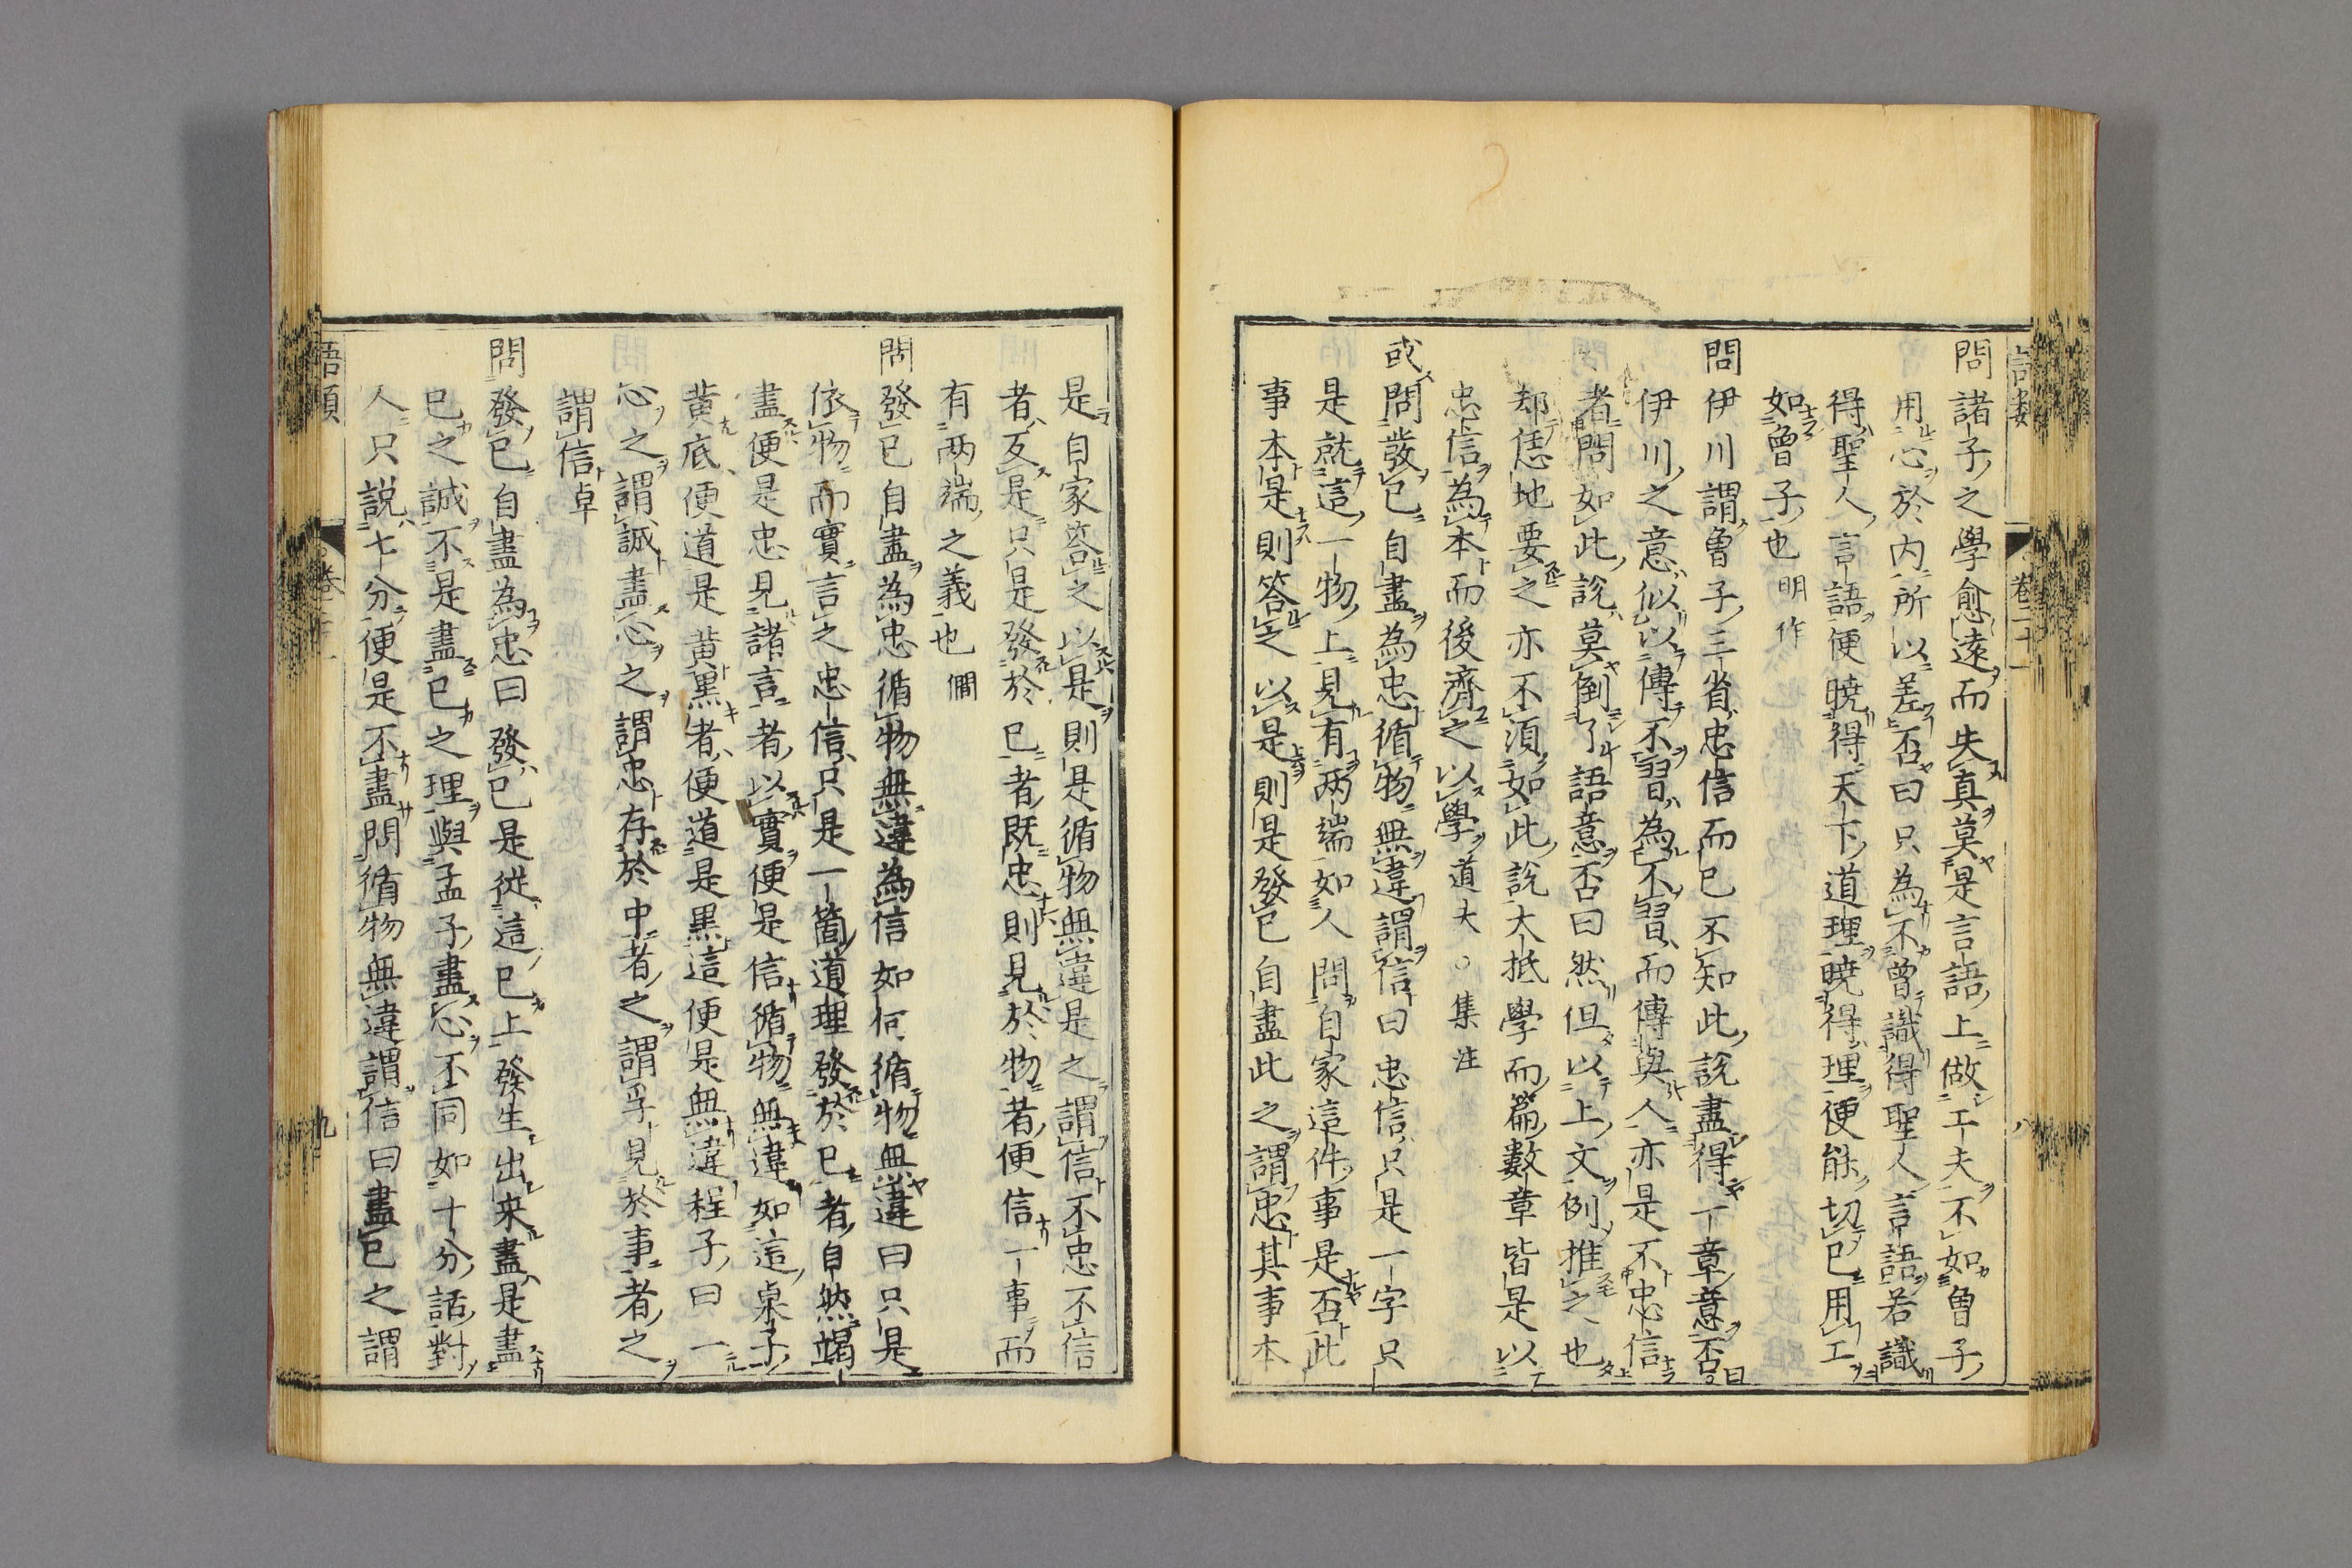 問諸子之學愈遠而失真莫是言語上做工夫不如曽子
用心於内所以差否曰只為不曽識得聖人言語若識
得聖人言語便暁得天下道理暁得理便能切已用工
如曽子也明作
問伊川謂曽子三省忠信而已不知此說盡得一章意否曰
伊川之意似以傳不習為不習而傳與人亦是不忠信
者問如此說莫倒了語意否曰然但以上文例推之也
却恁地要之亦不須如此說大抵學而篇數章皆是以
忠信為本而後濟之以學道夫○集注
或問發已自盡為忠循物無違謂信曰忠信只是一字只
是就這一物上見有两端如人問自家這件事是否此
事本是則答之以是則是發已自盡此之謂忠其事本
是自家答之以是則是循物無違是之謂信不忠不信
者反是只是發於已者既忠則見於物者便信一事而
有两端之義也僩
問發已自盡為忠循物無違為信如何循物無違曰只是
依物而實言之忠信只是一箇道理發於已者自然竭
盡便是忠見諸言者以實便是信循物無違如這桌子
黄底便道是黄黒者便道是黒這便是無違程子曰一
心之謂誠盡心之謂忠存於中者之謂孚見於事者之
謂信卓
問發已自盡為忠曰發已是從這已上發生出来盡是盡
已之誠不是盡已之理與孟子盡心不同如十分話對
人只說七分便是不盡問循物無違謂信曰盡已之謂
語類
卷二十一
九
卷二十一
八